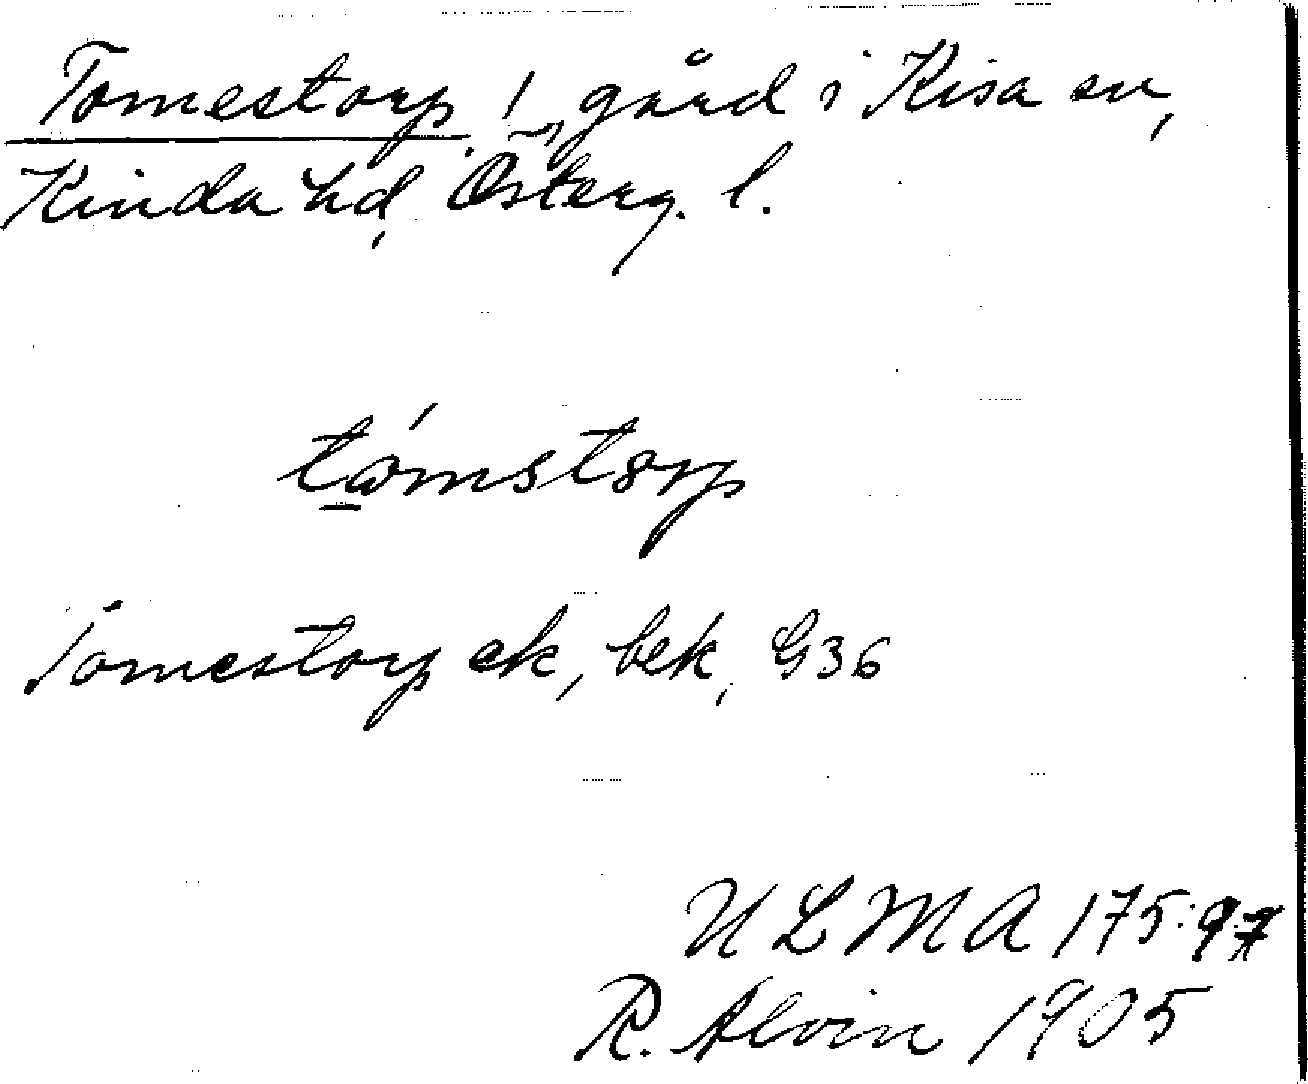 Tomestorp 1, gård i Kisa sn,
Kinda hd, Österg. l.
tómstorp
Tomestorp ek, bek, G36
ULMA 175:97
R. Alvin 1905